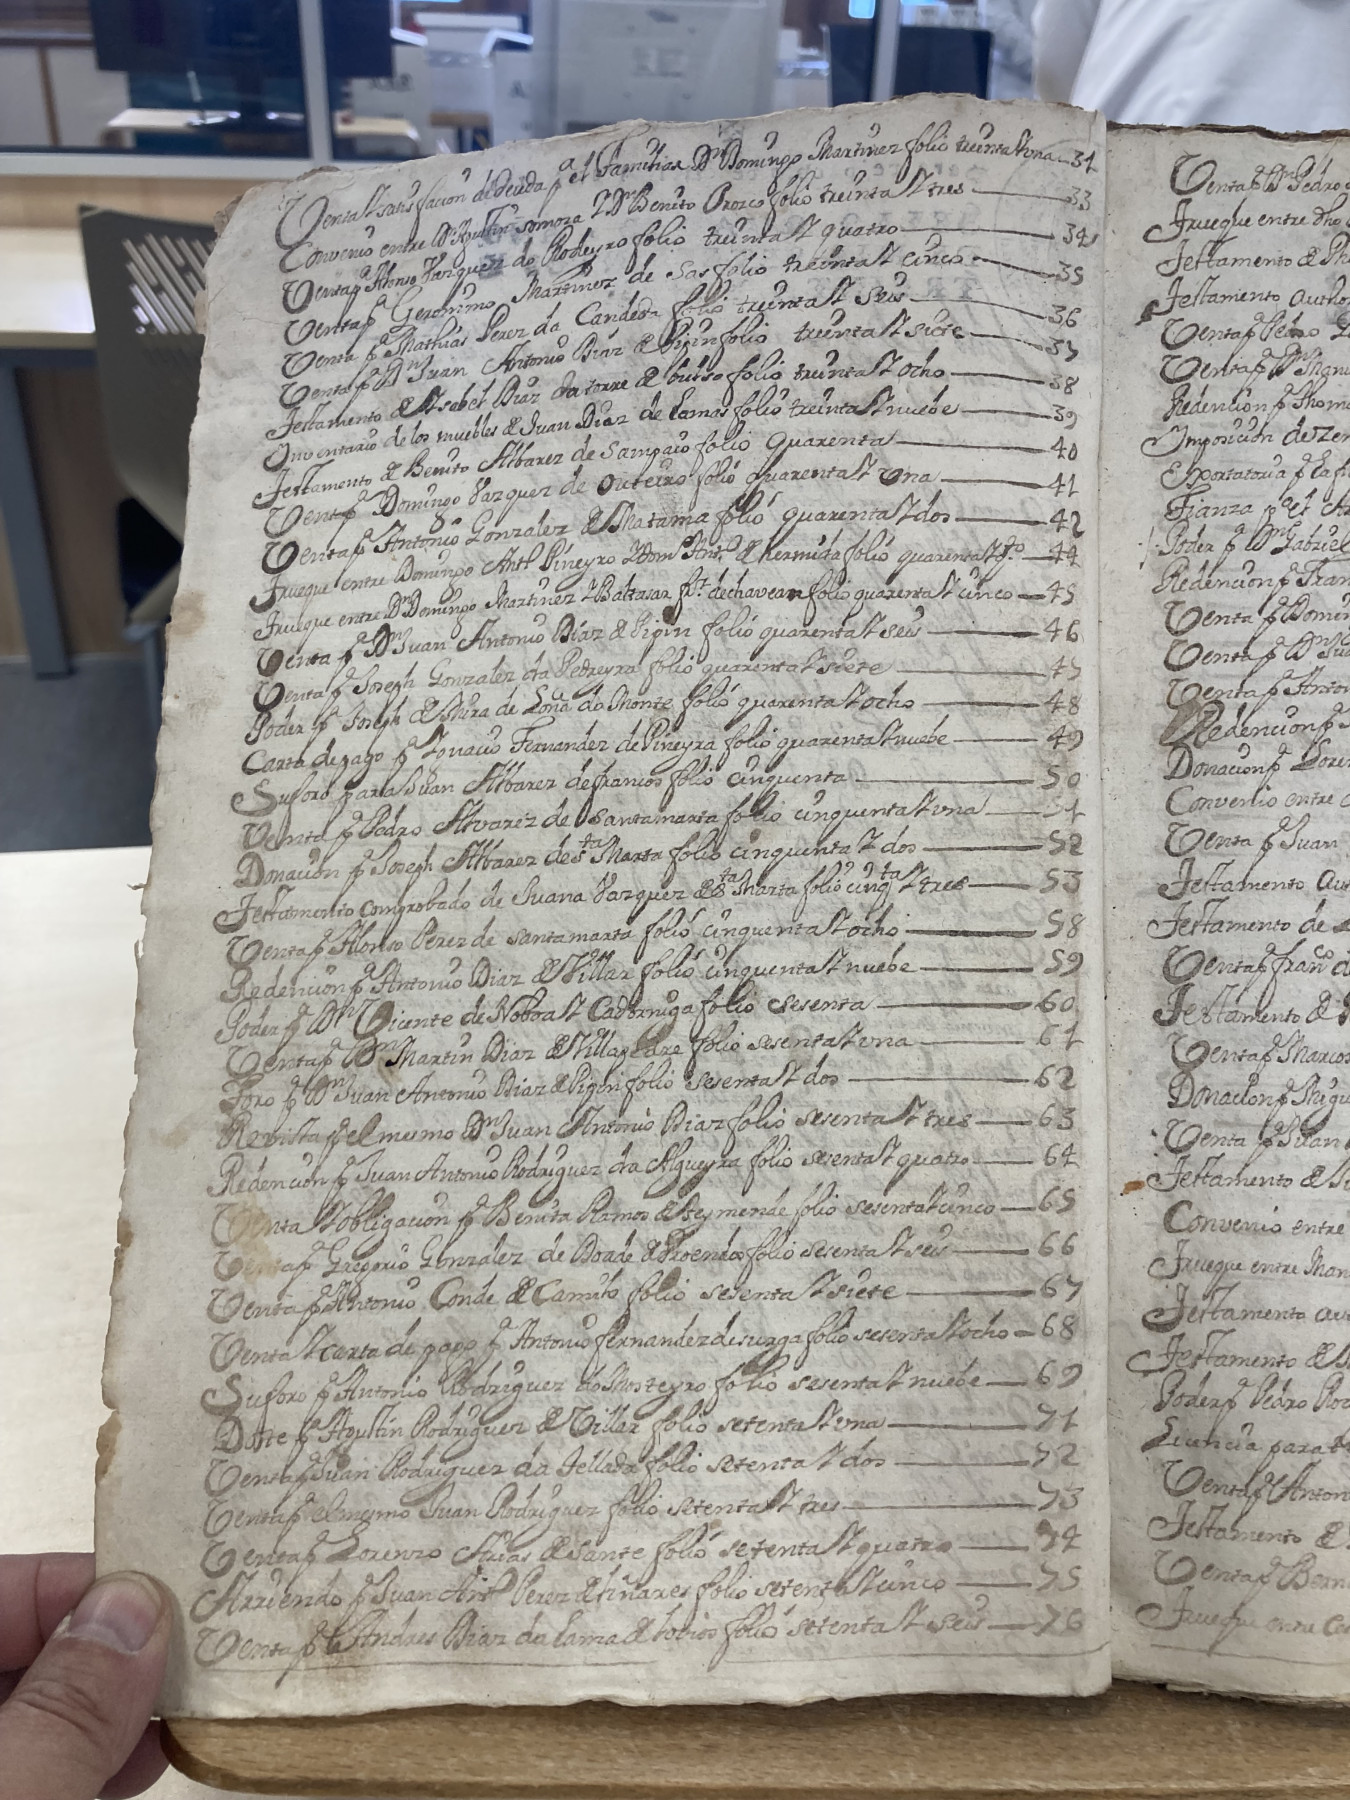 Venta y satisfacion de deuda pª el familiar Dn Domingo Martinez folio treinta y una 31
Convenio entre Dn Agustin somoza y Dn Benito Orozco folio treinta y tres 33
Venta pr Alonso Vazquez do Rodeyro folio treinta y quatro 34
Venta pr Geronimo Martinez de Sas folio treinta y cinco 35
Venta pr Mathias Perez da Candeda folio treinta y seis 36
Venta pr Dn Juan Antonio Diaz de Pipin folio treinta y siete 37
Testamento de Ysabel Diaz da torre de folio treinta y ocho 38
Ynventario de los muebles de Juan Diaz de Lamas folio treinta y nuebe 39
Testamento de Benito Albarez de Sampaio folio Quarenta 40
Venta pr Domingo Vazquez de Outeiro folio quarenta y una 41
Venta pr Antonio Gonzalez de Matama folio quarenta y dos 42
Trueque entre Domingo Antº Pineyro y Domº Antº de hermida folio quarenta y qtº 44
Trueque entre Dn Domingo Martinez y Baltasar de chavean folio quarenta y cinco 45
Venta pr Dn Juan Antonio Diaz de Pipin folio quarenta y seis 46
Venta pr Joseph Gonzalez da Pedreyra folio quarenta y siete 47
Poder pr Joseph de Mira de Loña do Monte folio quarenta y ocho 48
Carta de pago pr Ygnacio Fernandez de Pineyra folio quarenta y nuebe 49
Suforo para Juan Albarez de francos folio cinquenta 50
Venta pr Pedro Alvarez de Santamarta folio cinquenta y una 51
Donacion pr Joseph Albarez de Sta Marta folio cinquenta y dos 52
Testamento comprobado de Juana Vazquez de Sta Marta folio cinqta y tres 53
Venta pr Alonso Perez de santamarta folio cinquenta y ocho 58
Redencion pr Antonio Diaz de Villar folio cinquenta y nuebe 59
Poder pr Dn Vicente de Noboa y Cadorniga folio sesenta 60
Venta pr Dn Martin Diaz de Villapedre folio sesenta y una 61
Foro pr Dn Juan Antonio Diaz de Pipin folio sesenta y dos 62
Revista pr el mesmo Dn Juan Antonio Diaz folio sesenta y tres 63
Redencion pr Juan Antonio Rodriguez da Algueyra folio sesenta y quatro 64
Venta y obligacion pr Benita Ramos de Reymende folio sesenta y cinco 65
Venta pr Gregorio Gonzalez de Boade de Proendos folio sesenta y seis 66
Venta pr Antonio Conde de Camito folio sesenta y siete 67
Venta y carta de pago pr Antonio fernandez de surga folio sesenta y ocho 68
Suforo pr Antonio Rodriguez do Mosteyro folio sesenta y nuebe 69
Dote pr Agustin Rodriguez de Villar folio setenta y una 71
Venta pr Juan Rodriguez da Tellada folio setenta y dos 72
Venta pr el mesmo Juan Rodriguez folio setenta y tres 73
Venta pr Lorenzo Arias de sante folio setenta y quatro 74
Arriendo pr Juan Antº Perez de liñares folio setenta y cinco 75
Venta pr Andres Diaz da lama de tobios folio setenta y seis 76
Venta pr Dn Pedro
Trueque entre dho
Testamento de
Testamento
Venta pr Pedro
Venta pr Dn
Redencion pr Thom
Ymposicion de Zen
Exportatoria pr la
Fianza pr el
Poder pr Dn Gabriel
Redencion pr Fran
Venta pr Domin
Venta pr Dn Jua
Venta pr Anton
Redencion pr
Donacion pr Loren
Convenio entre
Venta pr Juan
Testamento
Testamento de
Venta pr franco
Testamento de
Venta pr Marcos
Donacion pr Migu
Venta pr Juan
Testamento de
Convenio entre
Trueque entre Man
Testamento
Testamento de
Poder pr Pedro Ro
Licencia para
Venta pr Anton
Testamento de
Venta pr Bern
Trueque entre